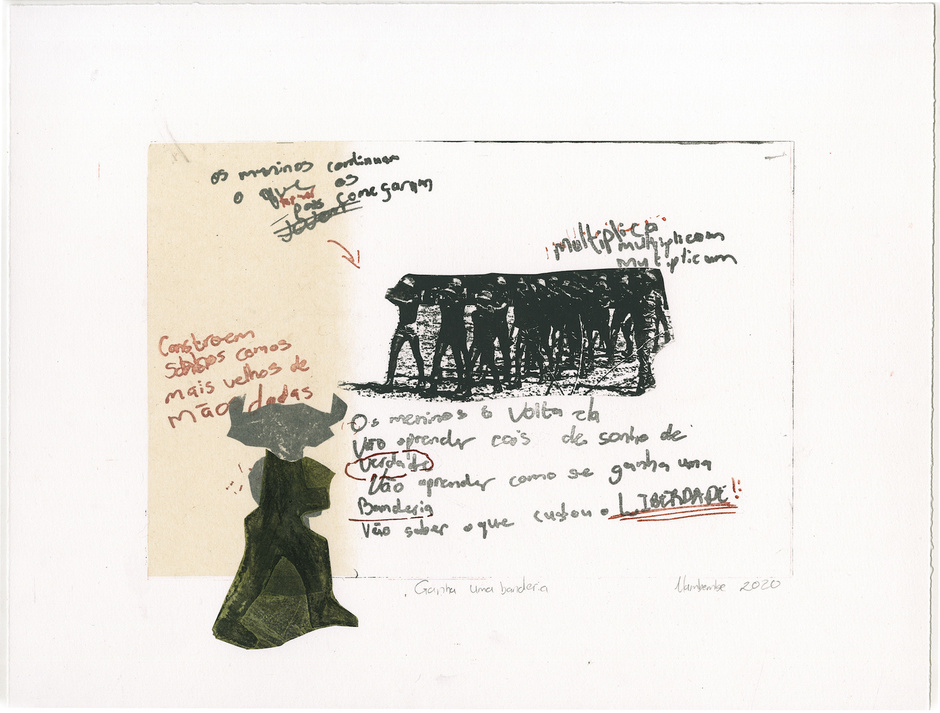 os meninos continuam
o que os
pais começaram
multiplica
multiplicam
multiplicam
Constroem
sonhos comos
mais velhos de
mão dadas
Os meninos à volta da
Vão aprender cois de sonho de
verdade
Vão aprender como se ganha uma
Banderia
Vão saber o que custou a LIBERDADE!
Ganha uma banderia
Nambembe 2020